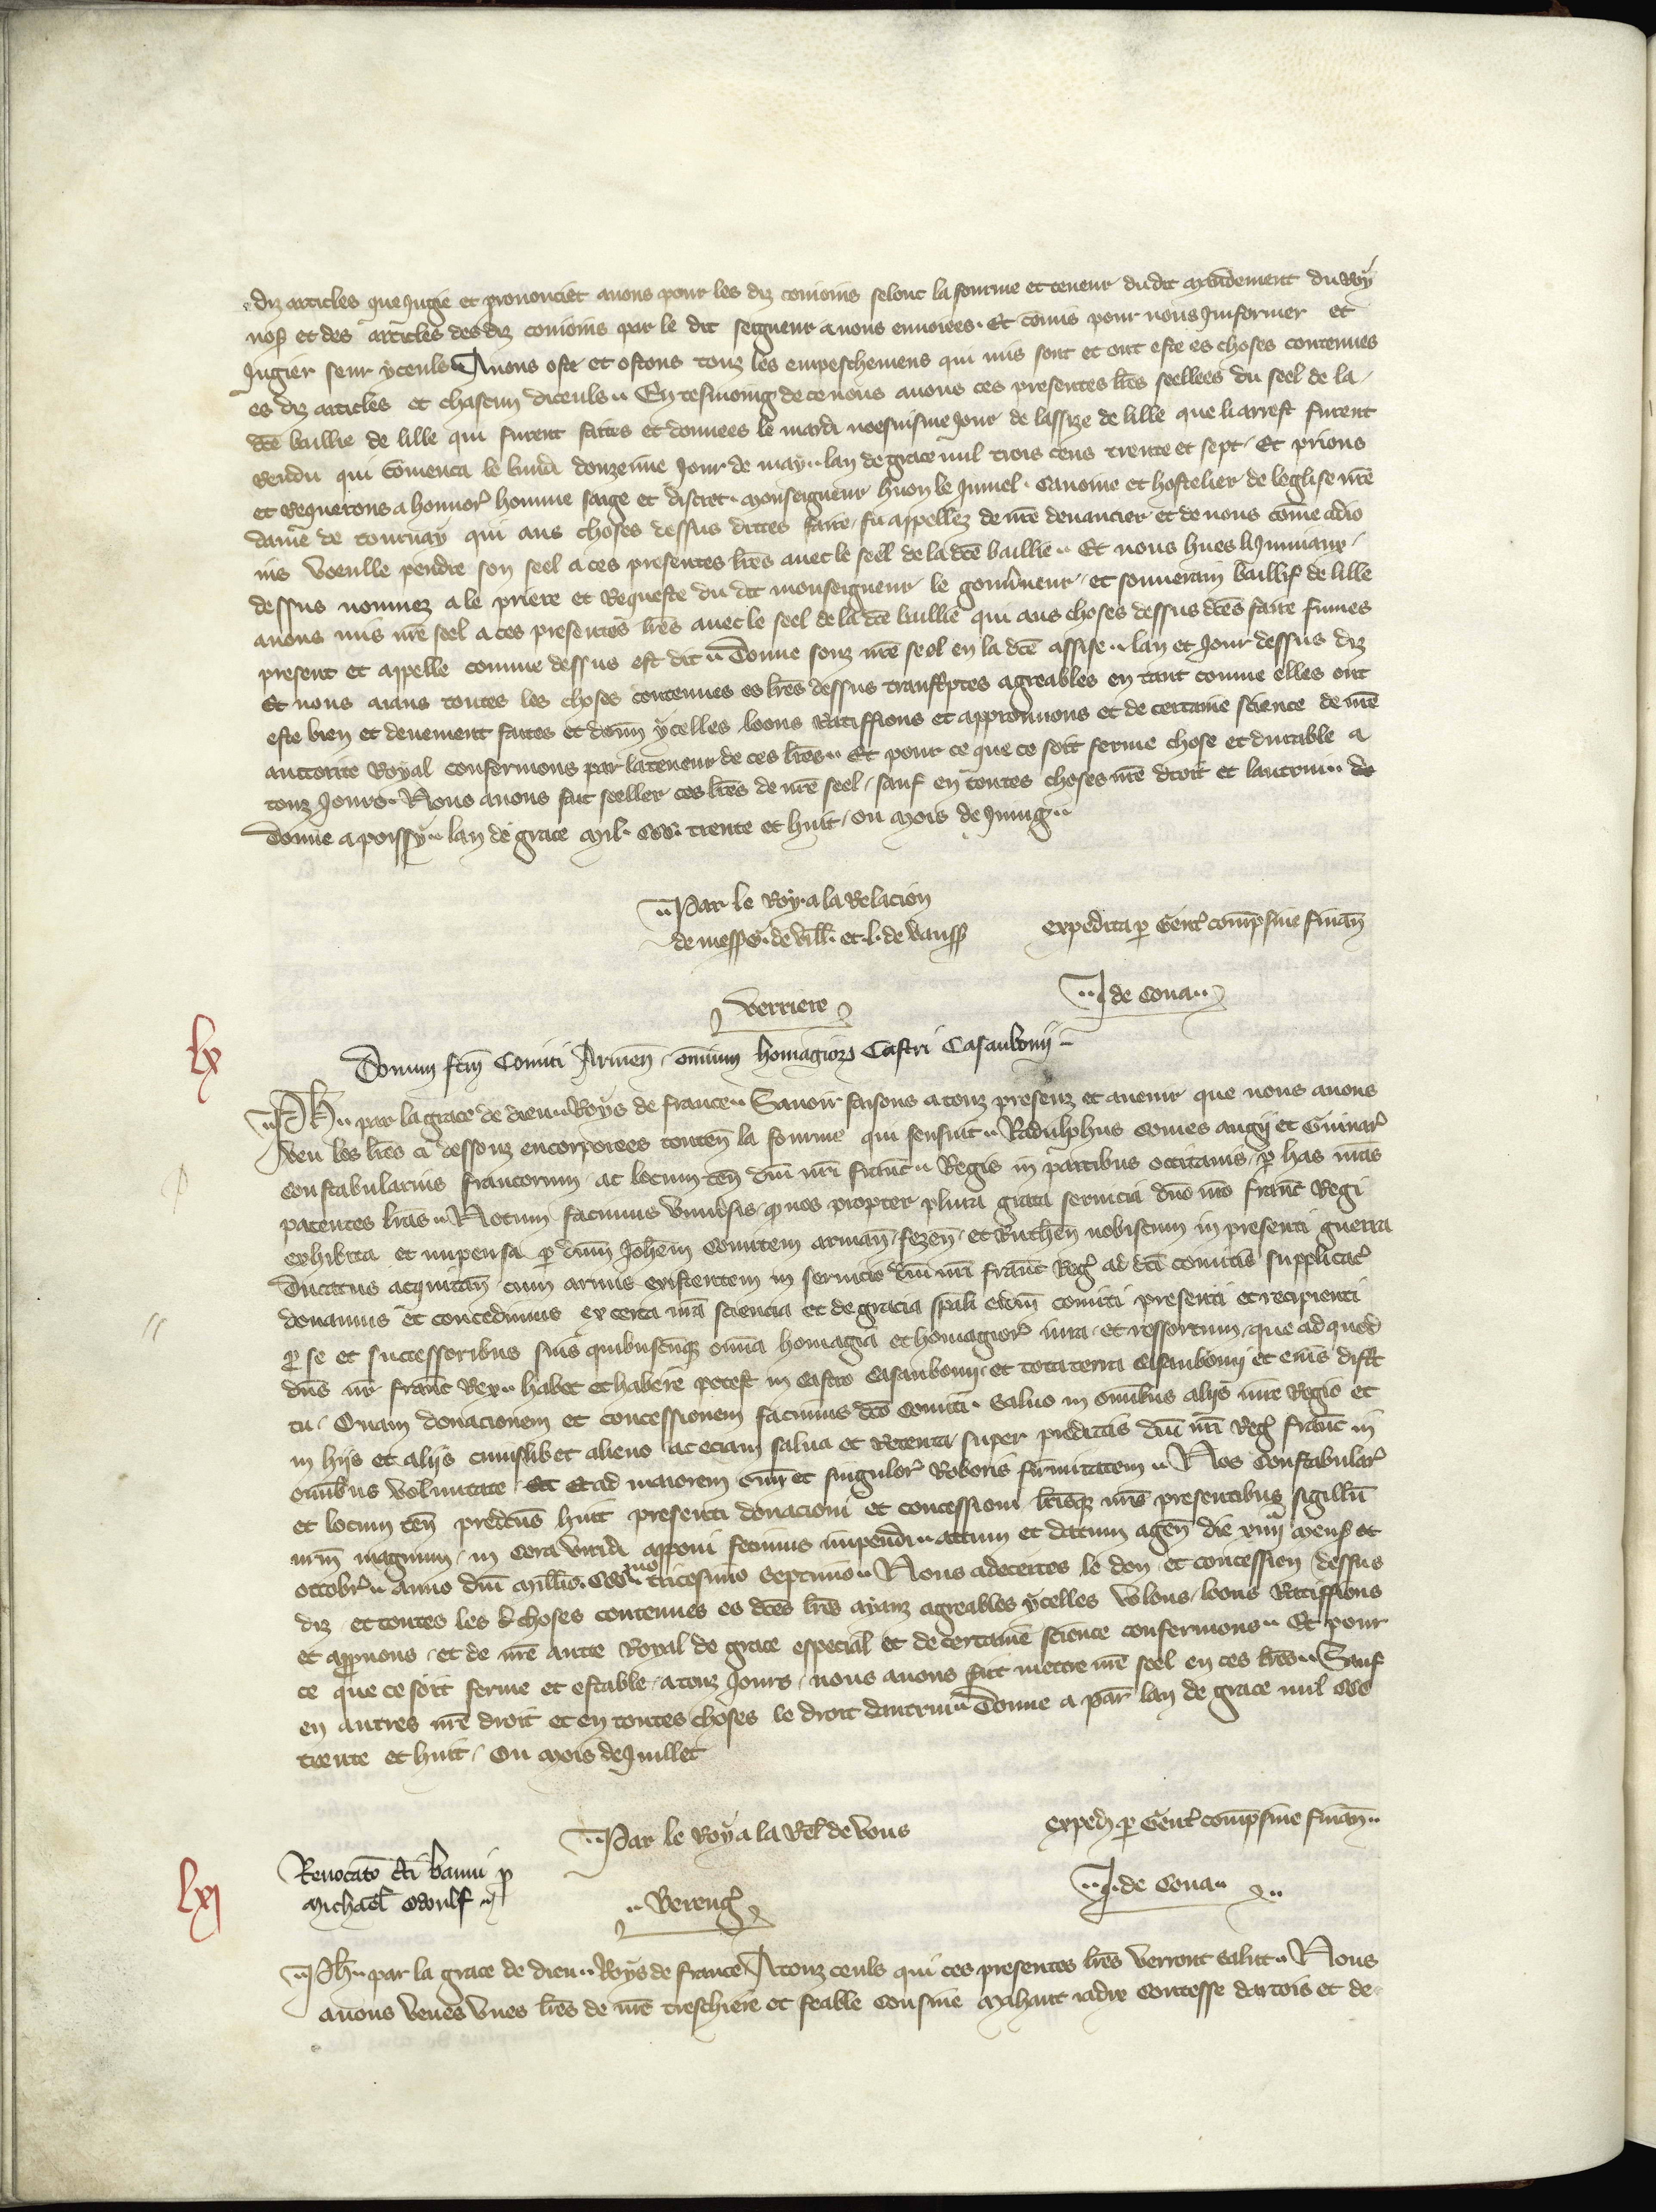 diz articles que Jugie et prononciet avons pour les diz conioins selonc la fourme et teneur dudit mandement du Roy
noss et des articles des diz conioins par le dit seigneur a nous envoiees. Et comis pour nous Jnformer et
Jugier seur yceuls Avons oste et ostons touz les empeschemens qui mis sont et ont este es choses contenues
es diz articles et chascun diceuls. En tesmoing de ce nous avons ces presentes lres seellees du seel de la
dce baillie de lille qui furent faites et donnees le mardi noefuisme Jour de lassize de lille que li arrest furent
Rendu qui comenca le lundi douzeime Jour de may. lan de grace mil trois cens trente et sept. Et prions
et Requerons a honnor homme saige et discret. monseigneur huon le Jumel. Canoine et hostelier de leglise nre
dame de tournay qui aus choses dessus dittes faire fu appellez de nre devancier et de nous come adio
ins Voeulle pendre son seel a ces presentes lres avec le seel de la dce baillie. Et nous hues li Jumiaux
dessus nommez a le priere et Requeste du dit monseigneur le gouvneur et souverain baillif de lille
avons mis nre seel a ces presentes lres avec le seel de la dce baillie qui aus choses dessus dces faire fumes
present et appelle comme dessus est dit. Donne souz nre seel en la dce assise. lan et Jour dessus diz
Et nous aians toutes les choses contenues es lres dessus transcptes agreables en tant comme elles ont
este bien et deuement faites et donn ycelles loons Ratiffions et approuvons et de certaine science de nre
auctorite Royal confermons par la teneur de ces lres. Et pour ce que ce soit ferme chose et durable a
touz Jours. Nous avons fait seeller ces lres de nre seel. sauf en toutes choses nre droit et lautrui. do
Donne a poissy. lan de grace mil. CCC. trente et huit. ou mois de Juing.
Par le Roy. a la Relacion
de mess G. de vill. et. l. de Vauss
expedita p Gent comp sine finan
Verriere
J de Cona
lx
Donum fcm Comiti Armen. omnium homagior Castri Casanbonii
Ph. par la grace de dieu. Roys de france. Savoir faisons a touz presenz et avenir que nous avons
Veu les lres ci dessouz encorporees conten la fourme qui sensuit. Radulphus Comes augi et Guinar
constabularius francorum. ac locum ten dni nri franc. Regis in partibus occitanis. p has nras
patentes lras. Notum facimus Univsis. q nos propter plura grata servicia dno nro franc Regi
exhibita et impensa p dnm Johem Comitem arman. fezen. et Ruthen nobiscum in presenti guerra
Ducatus acquitan. cum armis existentem in servicio dni nri franc Reg ad dci comitis supplicac
donamus et concedimus ex certa nra sciencia et de gracia spali eidm comiti presenti et recipienti
p se et successoribus suis quibuscumq omnia homagia et homagior iura. et ressortum. que ad quod
dns nr franc Rex. habet et habere potest in Castro Casanbonii. et tota terra Casanbonii et eius dist
tu. Quam donacionem et concessionem facimus dco Comiti. salvo in omnibus aliis iure Regio et
in hiis et aliis cuiuslibet alieno ac eciam salva et Retenta super predictis dni nri Reg franc in
omnibus voluntate. Et Et ad maiorem omn et singulor Roboris firmitatem. Nos Constabular
et locum ten predcus huic presenti donacioni et concessioni lrisq nris presentibus sigillu
nrm magnum. in Cera viridi apponi fecimus impendi. actum et datum agen die xiiiia mens
octobr. anno dni millio. CCCmo tricesimo septimo. Nous adecertes le don et concession dessus
diz. et toutes les choses contenues es dces lres ayanz agreables ycelles volons. loons Ratiffions
et appvons. et de nre aucte Royal de grace especial et de certaine science confermons. Et pour
ce que ce soit ferme et estable a touz Jours. nous avons fait mettre nre seel en ces lres. Sauf
en autres nre droit et en toutes choses le droit dautrui. Donne a par lan de grace mil CCC
trente et huit. Ou mois de Juillet
Par le Roy a la Rel de vous
exped p Gent comp sine finan
lxj
Revocato dci banni p
Michael
Bereng
J. de Cona
Ph. par la grace de dieu. Roys de france A touz ceuls qui ces presentes lres verront salut. Nous
avons veues unes lres de nre treschiere et feable Cousine Mahaut iadix Contesse dartois et de